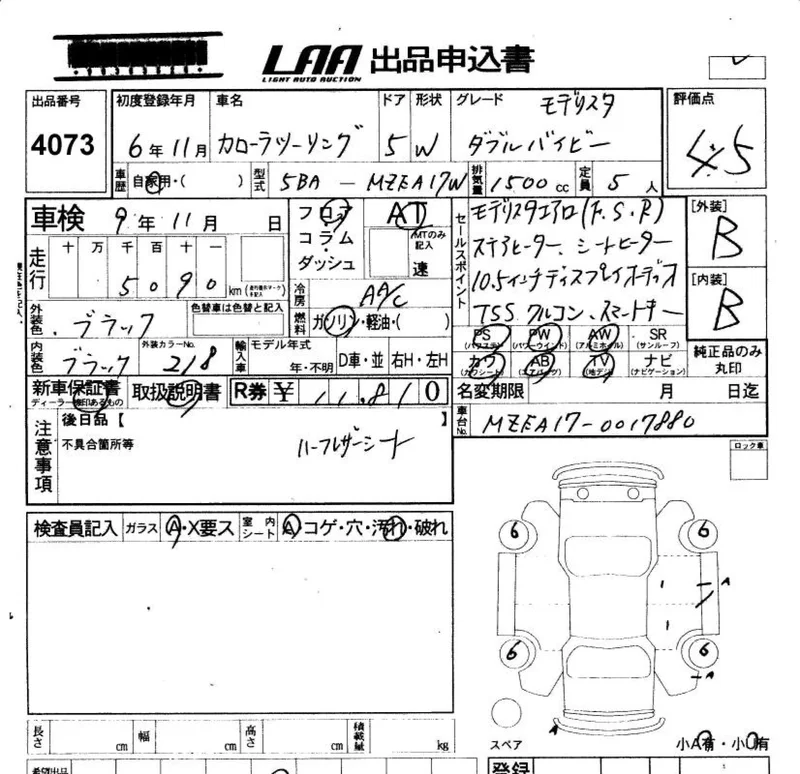 LAA 出品申込書
LIGHT AUTO AUCTION
出品番号
4073
初度登録年月
6年11月
車名
カローラツーリング
ドア
5
形状
W
グレード
モデリスタ
ダブルバイビー
評価点
4.5
車歴
自家用・( )
型式
5BA - MZEA17W
排気量
1500cc
定員
5人
車検
9年11月 日
フロア
コラム
・
ダッシュ
AT
MTのみ記入
速
セールスポイント
モデリスタエアロ(F.S.R)
ステアヒーター、シートヒーター
10.5インチディスプレイオーディオ
TSS クルコン、スマートキー
[外装]
B
[内装]
B
走行
十 万 千 百 十 一
5090
km
冷房
AA/C
燃料
ガソリン・軽油・( )
外装色
ブラック
色替車は色替と記入
内装色
ブラック
外装カラーNo.
218
輸入車
モデル年式
年・不明
D車・並
右H・左H
PS
(パワステ)
PW
(パワーウインド)
AW
(アルミホイル)
SR
(サンルーフ)
カワ
(カワシート)
AB
(エアバッグ)
TV
(地デジ)
ナビ
(ナビゲーション)
純正品のみ
丸印
新車保証書
ディーラー検印あるもの
取扱説明書
R券
¥ 11,810
名変期限
月 日迄
車台No.
MZEA17-0017880
注意事項
後日品【 】
不具合箇所等
ハーフレザーシート
ロック車
検査員記入
ガラス
A・X要ス
室内シート
A・コゲ・穴・汚れ・破れ
6
6
1
A
1
6
6
A
A
スペア
小A有・小U有
長さ
cm
幅
cm
高さ
cm
積載量
kg
希望出品
登録